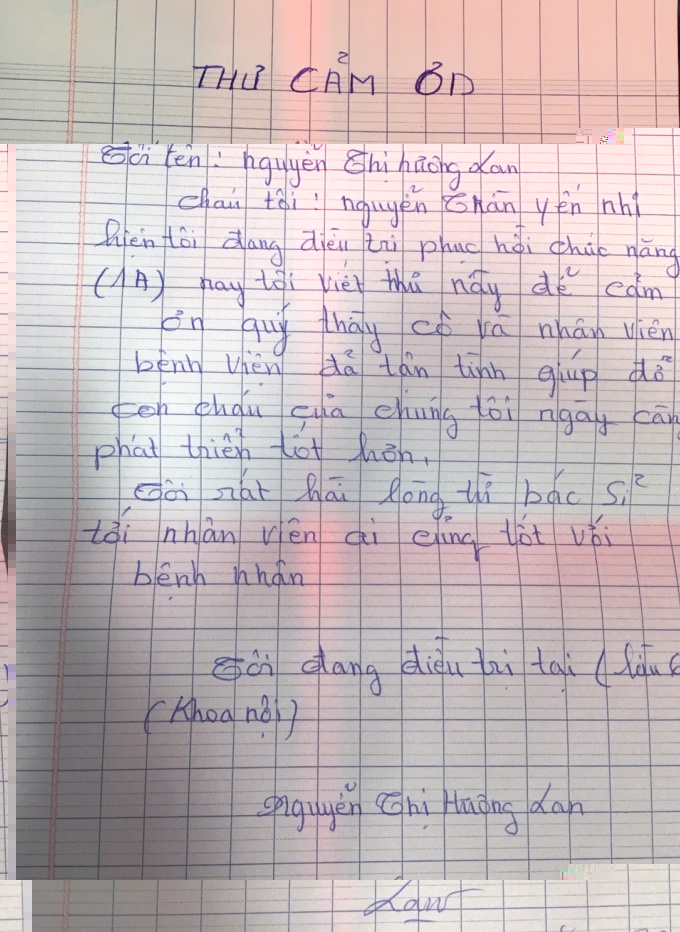 THƯ CẢM ƠN
Tôi tên: nguyễn Thị hương Lan
cháu tôi: nguyễn Trần yến nhi
hiện tôi đang điều trị phục hồi chức năng
(1A) nay tôi viết thư nầy để cảm
ơn quý thầy cô và nhân viên
bệnh viện đã tận tình giúp đỡ
con cháu của chúng tôi ngày càng
phát triển tốt hơn,
Tôi rất hài lòng từ bác sĩ
tới nhân viên ai cũng tốt với
bệnh nhân
Tôi đang điều trị tại (lầu 6
(Khoa nội)
Nguyễn Thị Hương Lan
Lan